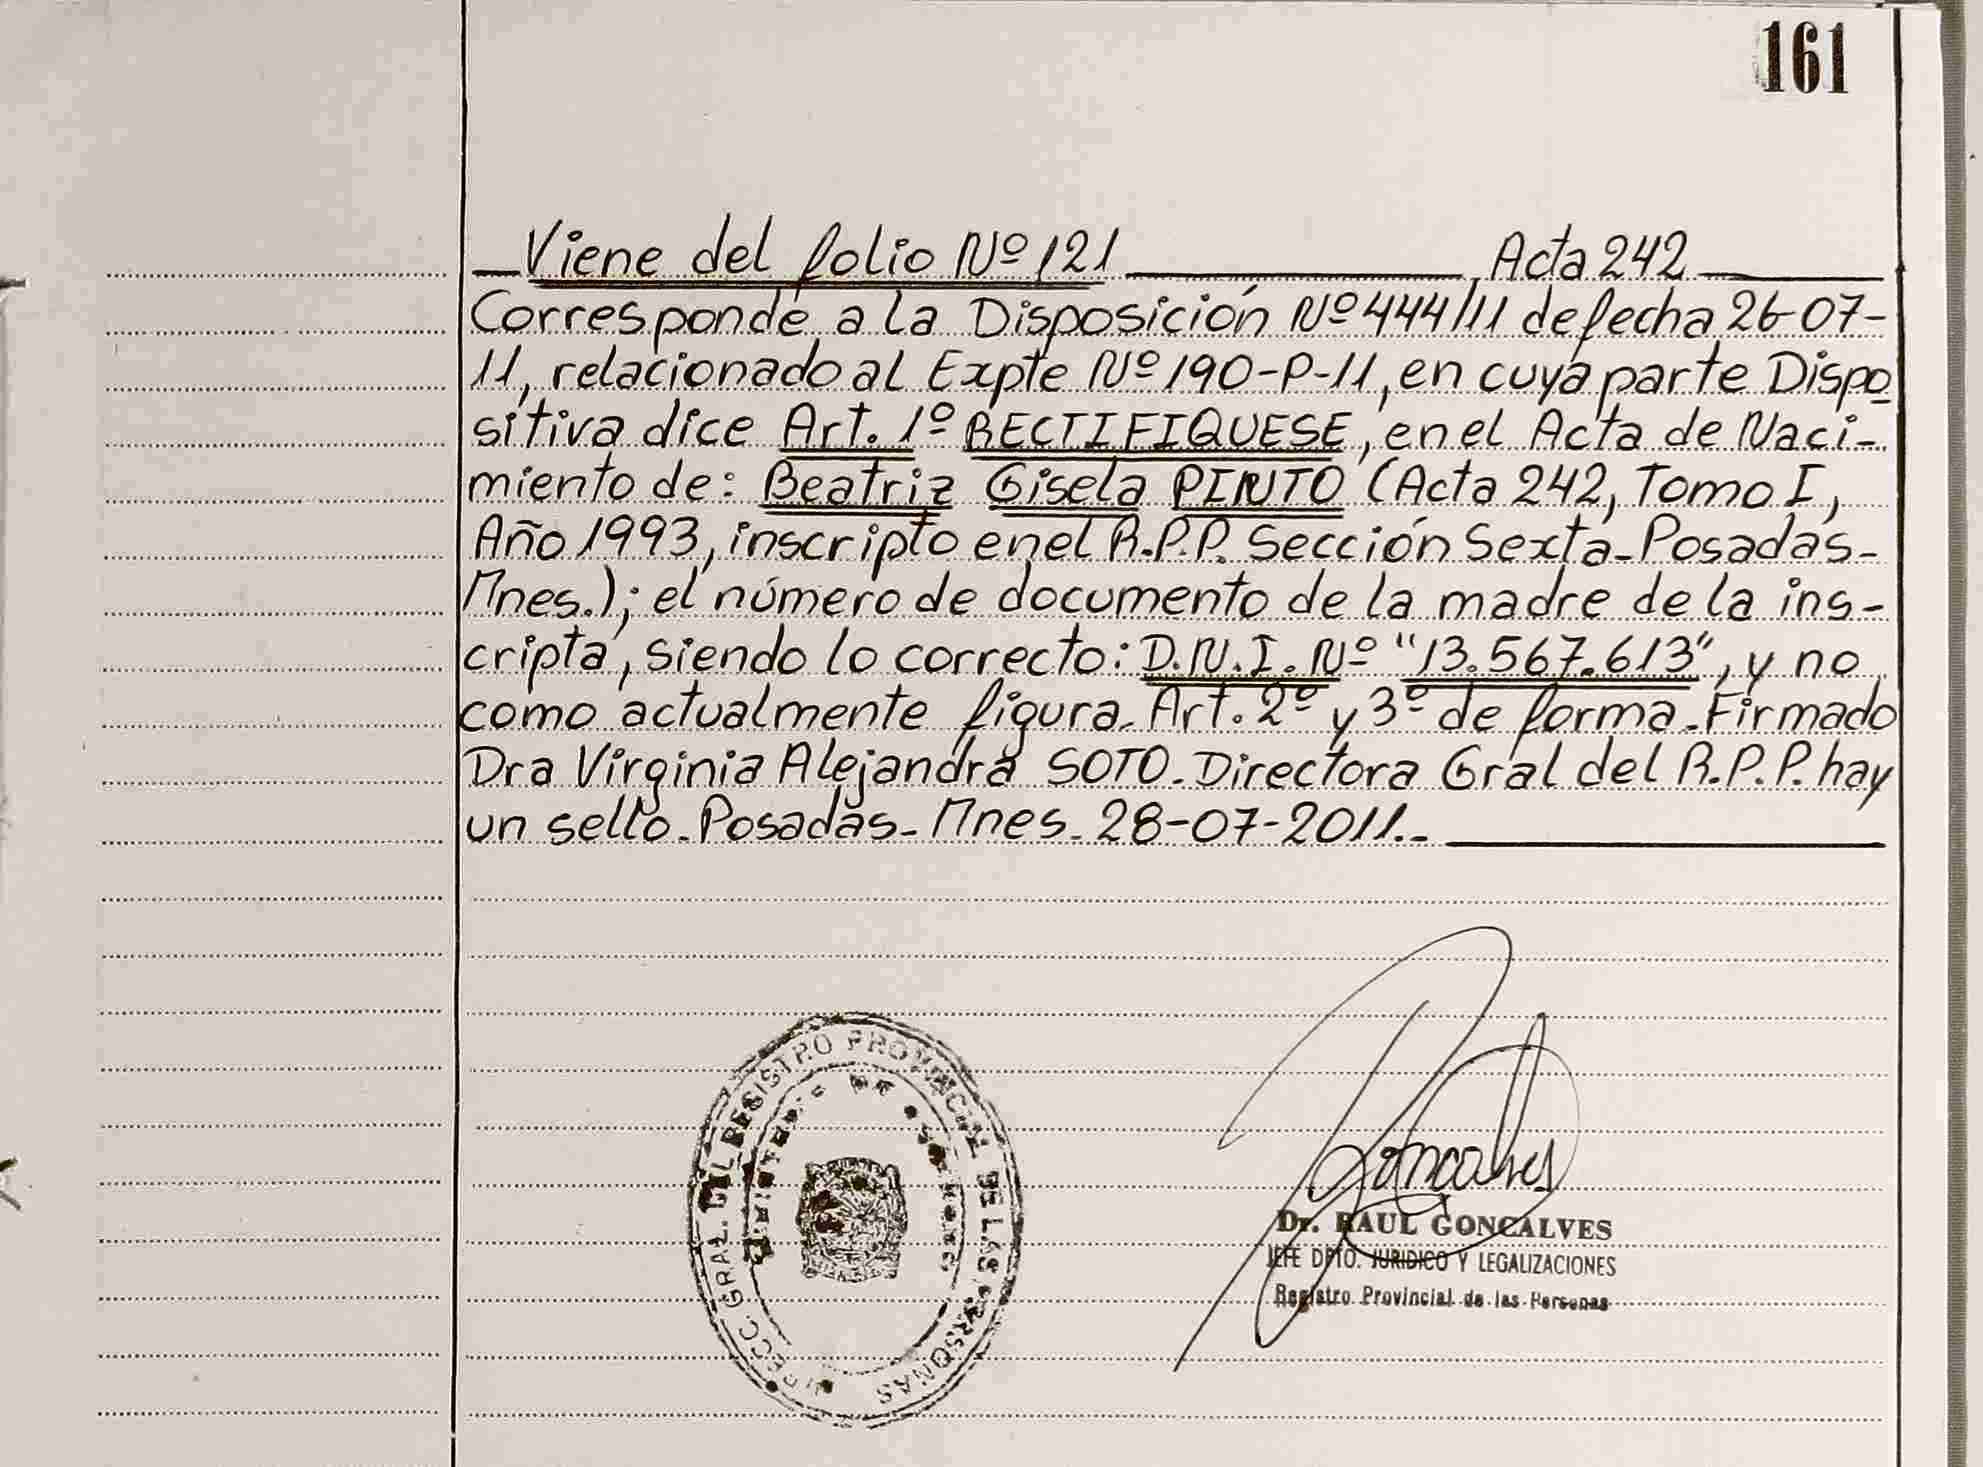 161
Viene del folio Nº 121 Acta 242
Corresponde a la Disposición Nº 444/11 de fecha 26-07-
11, relacionado al Expte Nº 190-P-11, en cuya parte Dispo
sitiva dice Art. 1º RECTIFIQUESE, en el Acta de Naci-
miento de: Beatriz Gisela PINTO (Acta 242, Tomo I,
Año 1993, inscripto en el R.P.P. Sección Sexta-Posadas-
Mnes.); el número de documento de la madre de la ins-
cripta, siendo lo correcto: D.N.I. Nº "13.567.613", y no
como actualmente figura. Art. 2º y 3º de forma. Firmado
Dra Virginia Alejandra SOTO. Directora Gral del R.P.P. hay
un sello. Posadas- Mnes. 28-07-2011.-
GRAL. DEL REGISTRO PROVINCIAL DE LAS PERSONAS
Goncalves
Dr. RAUL GONCALVES
JEFE DPTO. JURIDICO Y LEGALIZACIONES
Registro Provincial de las Personas